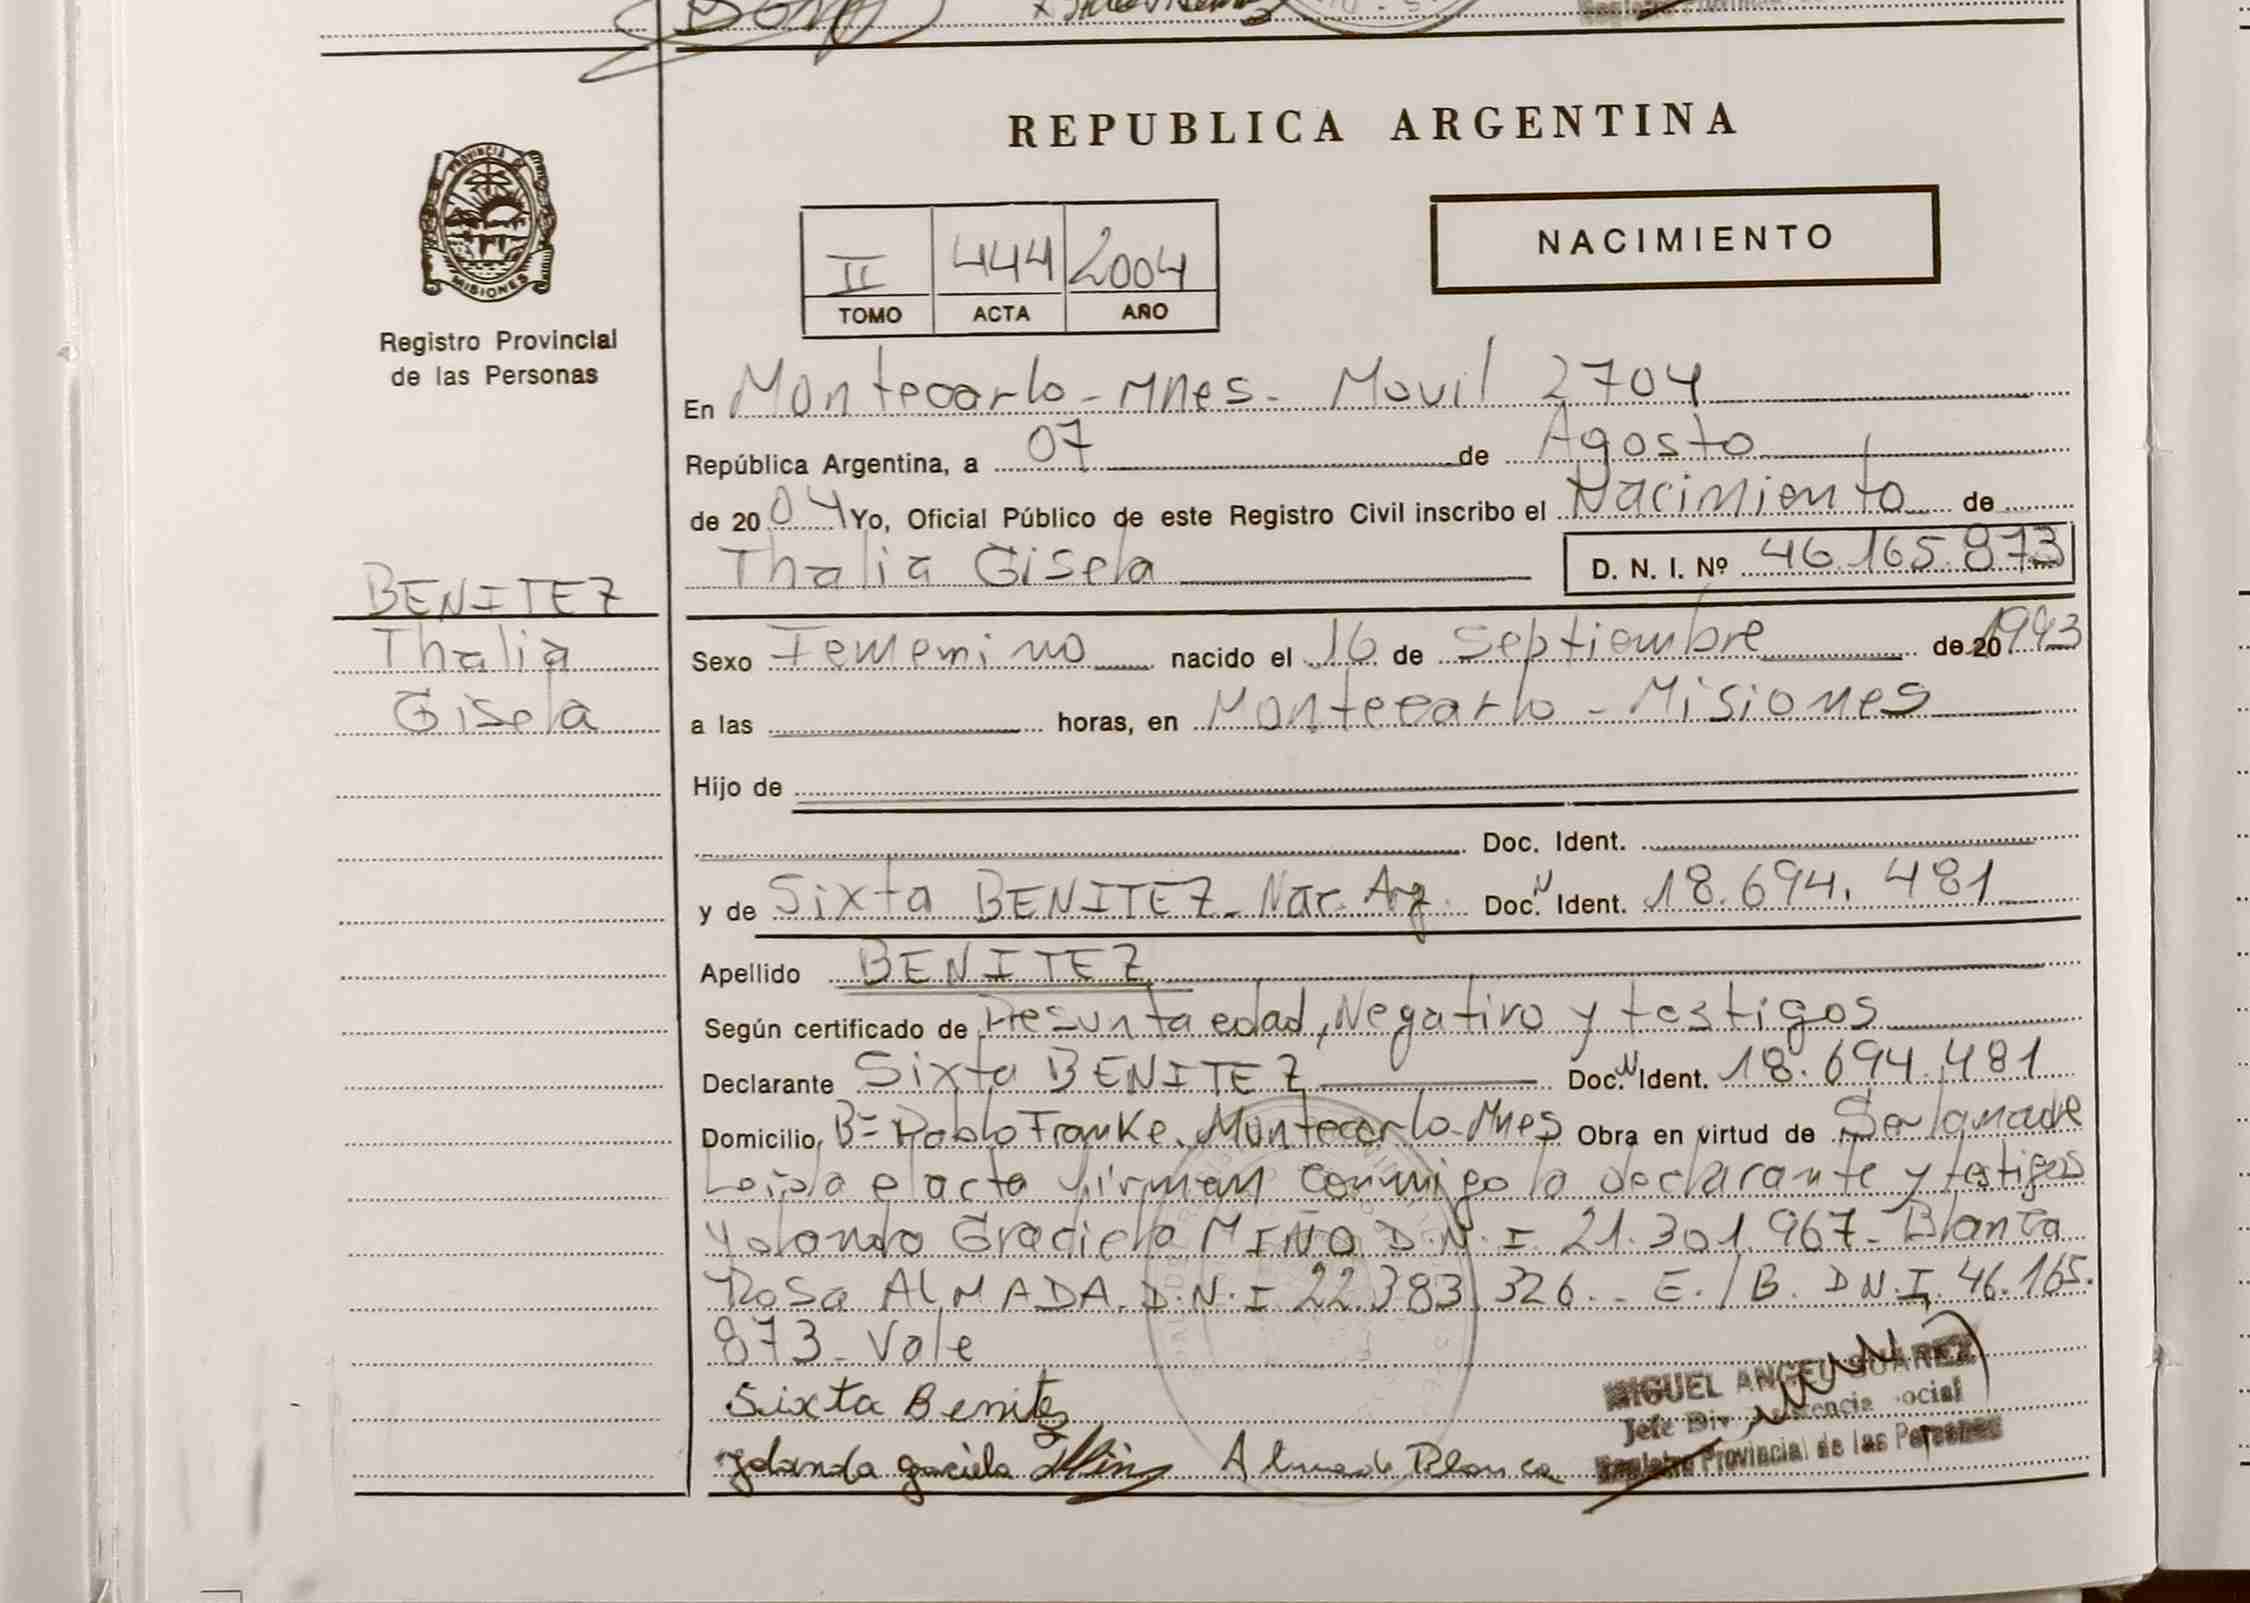 REPUBLICA ARGENTINA
PROVINCIA DE
MISIONES
Registro Provincial
de las Personas
II 444 2004
TOMO ACTA AÑO
NACIMIENTO
En Montecarlo - Mnes. Movil 2704
República Argentina, a 07 de Agosto
de 20 04 Yo, Oficial Público de este Registro Civil inscribo el Nacimiento de
Thalia Gisela D. N. I. Nº 46.165.873
BENITEZ
Thalia
Gisela
Sexo Femenino nacido el 16 de Septiembre de 20 1993
a las horas, en Montecarlo - Misiones
Hijo de
Doc. Ident.
y de Sixta BENITEZ - Nac. Arg. Doc. N Ident. 18.694.481
Apellido BENITEZ
Según certificado de Presunta edad, Negativo y testigos
Declarante Sixta BENITEZ Doc. N Ident. 18.694.481
Domicilio B= Pablo Franke. Montecarlo - Mnes Obra en virtud de Ser la madre
Leida el acta firman conmigo la declarante y testigos
Yolanda Graciela MIÑO D.N.I 21.301.967 - Blanca
Rosa ALMADA D.N.I 22.383.326 - E./B. D.N.I. 46.165.
873 - Vale
Sixta Benitez
Yolanda graciela Miño Almada Blanca
MIGUEL ANGEL SUAREZ
Jefe Div. Social
Registro Provincial de las Personas